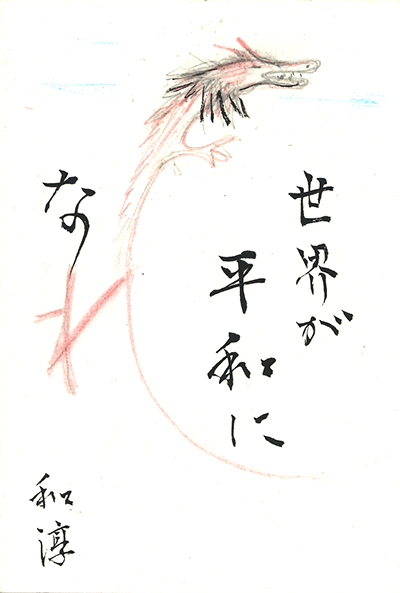 世界が
平和に
なれ
和淳